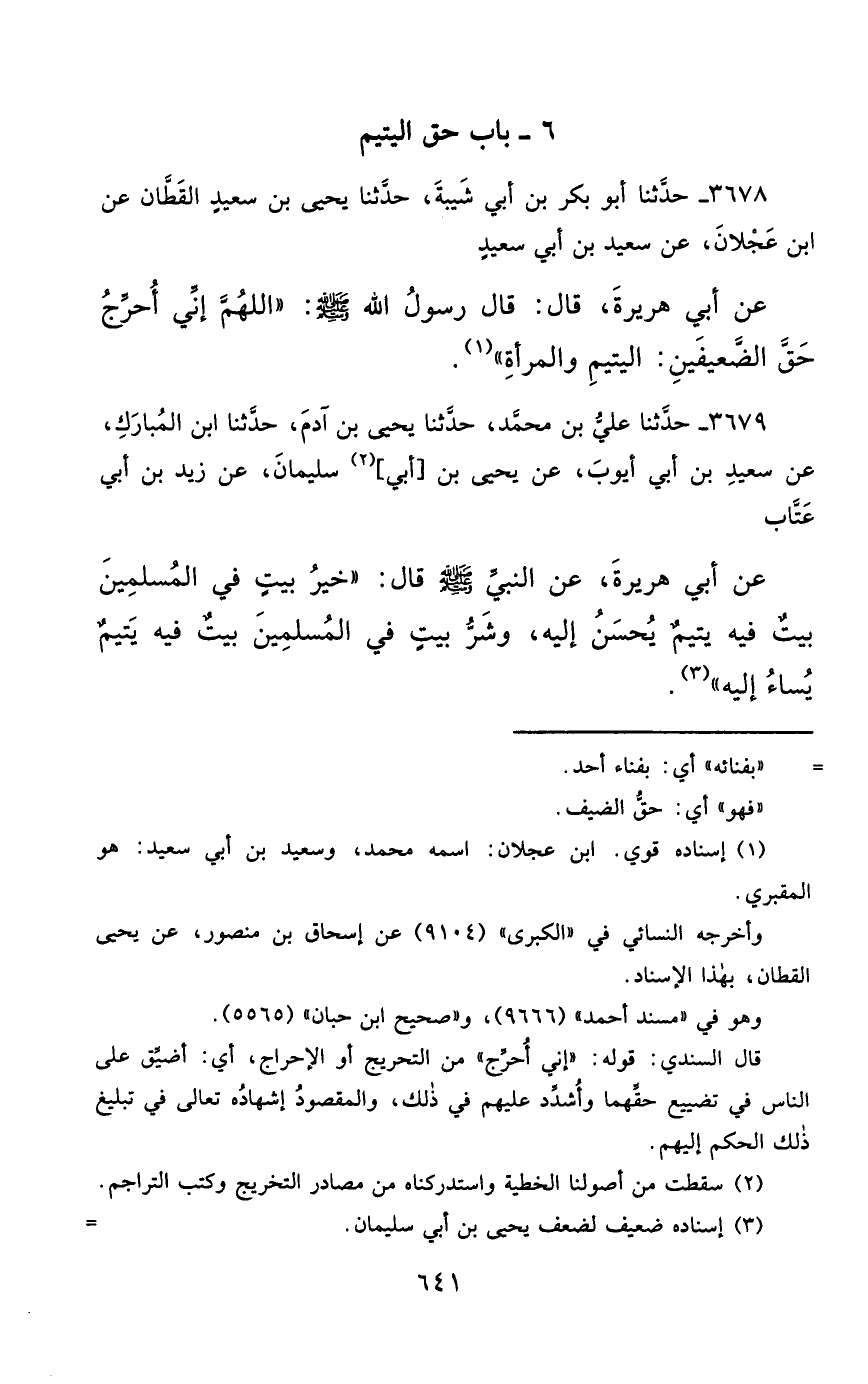 ٦ ـ باب حق اليتيم
٣٦٧٨ـ حدَّثنا أبو بكر بن أبي شَيبةَ، حدَّثنا يحيى بن سعيدٍ القَطَّان عن
ابن عَجْلانَ، عن سعيد بن أبي سعيدٍ
عن أبي هريرةَ، قال: قال رسولُ الله ﷺ: «اللهُمَّ إنِّي أُحرِّجُ
حَقَّ الضَّعيفَينِ: اليتيمِ والمرأةِ»(١).
٣٦٧٩ـ حدَّثنا عليُّ بن محمَّد، حدَّثنا يحيى بن آدمَ، حدَّثنا ابن المُبارَكِ،
عن سعيدِ بن أبي أيوبَ، عن يحيى بن [أبي](٢) سليمانَ، عن زيد بن أبي
عَتَّاب
عن أبي هريرةَ، عن النبيِّ ﷺ قال: «خيرُ بيتٍ في المُسلمِينَ
بيتٌ فيه يتيمٌ يُحسَنُ إليه، وشَرُّ بيتٍ في المُسلمِينَ بيتٌ فيه يَتيمٌ
يُساءُ إليه»(٣).
= «بفنائه» أي: بفناء أحد.
«فهو» أي: حقُّ الضيف.
(١) إسناده قوي. ابن عجلان: اسمه محمد، وسعيد بن أبي سعيد: هو
المقبري.
وأخرجه النسائي في «الكبرى» (٩١٠٤) عن إسحاق بن منصور، عن يحيى
القطان، بهٰذا الإسناد.
وهو في «مسند أحمد» (٩٦٦٦)، و«صحيح ابن حبان» (٥٥٦٥).
قال السندي: قوله: «إني أُحرِّج» من التحريج أو الإحراج، أي: أضيِّق على
الناس في تضييع حقِّهما وأُشدِّد عليهم في ذٰلك، والمقصودُ إشهادُه تعالى في تبليغ
ذٰلك الحكم إليهم.
(٢) سقطت من أصولنا الخطية واستدركناه من مصادر التخريج وكتب التراجم.
(٣) إسناده ضعيف لضعف يحيى بن أبي سليمان. =
٦٤١